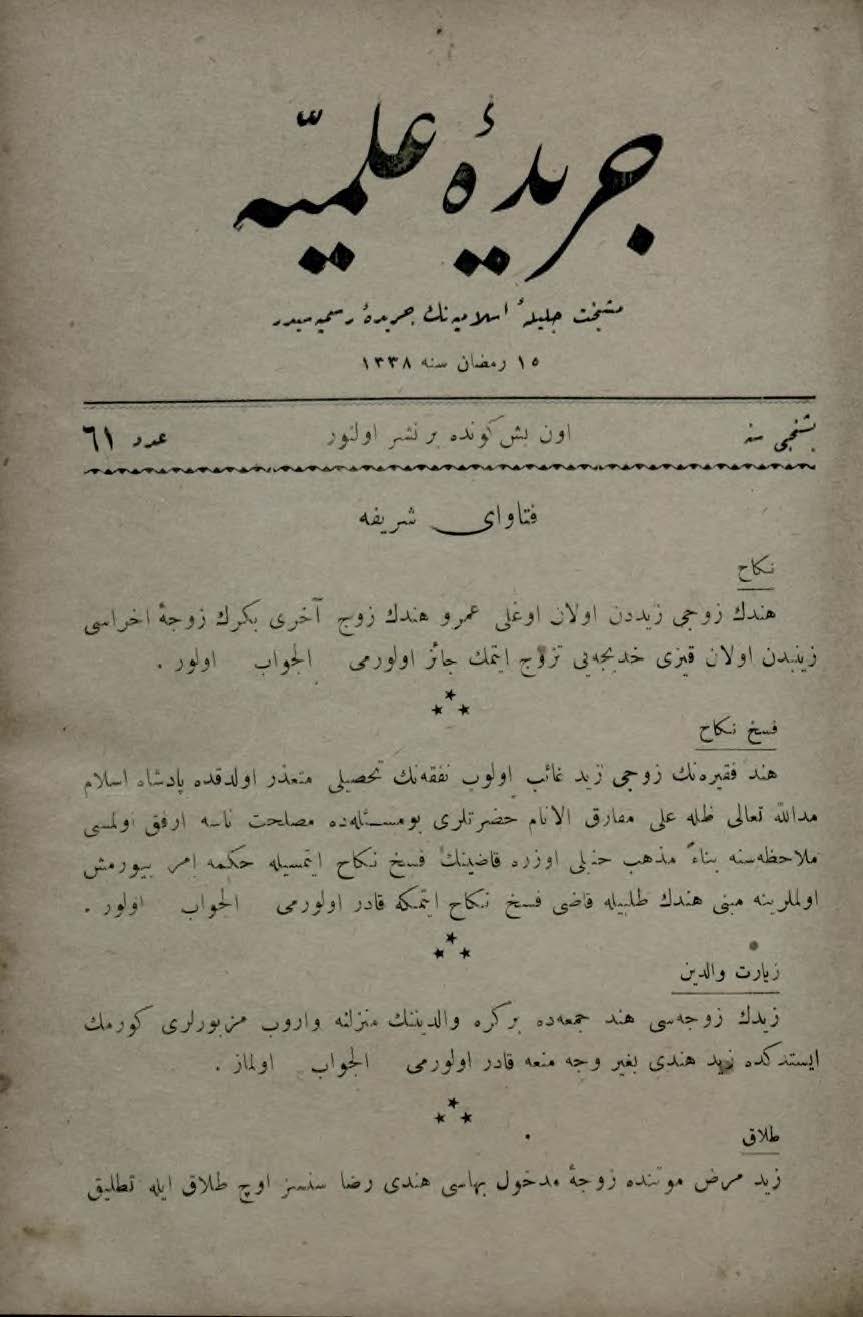 جريدۀ علميّه
مشيخت جليلۀ اسلاميه‌نك جريدۀ رسميه‌سيدر
١٥ رمضان سنه ١٣٣٨
بشنجى سنه
اون بش كونده بر نشر اولنور
عدد ٦١
فتاواى شريفه
نكاح
هندك زوجى زيددن اولان اوغلى عمرو هندك زوج آخرى بكرك زوجۀ اخراسى
زينبدن اولان قيزى خديجه‌يى تزوج ايتمك جائز اولورمى الجواب اولور .
فسخ نكاح
هند فقيره‌نك زوجى زيد غائب اولوب نفقه‌نك تحصيلى متعذر اولدقده پادشاه اسلام
مدالله تعالى ظله على مفارق الانام حضرتلرى بومسئله‌ده مصلحت ناسه ارفق اولمسى
ملاحظه‌سنه بناءً مذهب حنبلى اوزره قاضينك فسخ نكاح ايتمسيله حكمه امر بيورمش
اولملرينه مبنى هندك طلبيله قاضى فسخ نكاح ايتمكه قادر اولورمى الجواب اولور .
زيارت والدين
زيدك زوجه‌سى هند جمعه‌ده بر كره والديننك منزلنه واروب مزبورلرى كورمك
ايستدكده زيد هندى بغير وجه منعه قادر اولورمى الجواب اولماز .
طلاق
زيد مرض موتنده زوجۀ مدخول بهاسى هندى رضا سنسز اوچ طلاق ايله تطليق